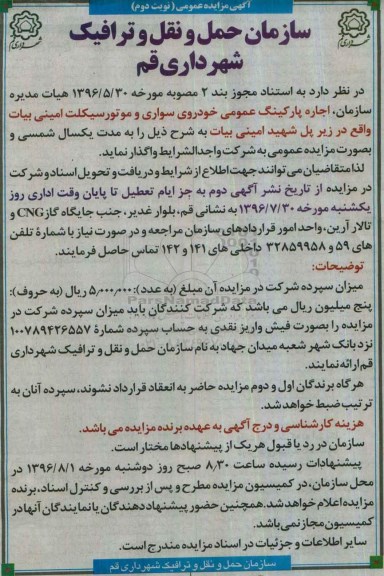 آگهی مزایده عمومی (نوبت دوم)
سازمان حمل و نقل و ترافیک
شهرداری قم
در نظر دارد به استناد مجوز بند ۲ مصوبه مورخه ۱۳۹۶/۵/۳۰ هیات مدیره
سازمان، اجاره پارکینگ عمومی خودروی سواری و موتورسیکلت امینی بیات
واقع در زیر پل شهید امینی بیات به شرح ذیل را به مدت یکسال شمسی و
بصورت مزایده عمومی به شرکت واجدالشرایط واگذار نماید.
لذا متقاضیان می توانند جهت اطلاع از شرایط و دریافت و تحویل اسناد و شرکت
در مزایده از تاریخ نشر آگهی دوم به جز ایام تعطیل تا پایان وقت اداری روز
یکشنبه مورخه ۱۳۹۶/۷/۳۰ به نشانی قم، بلوار غدیر، جنب جایگاه گاز CNG و
تالار آرین، واحد امور قراردادهای سازمان مراجعه و در صورت نیاز با شمارۀ تلفن
های ۵۹ و ۳۲۸۵۹۹۵۸ داخلی های ۱۴۱ و ۱۴۲ تماس حاصل فرمایند.
توضیحات:
میزان سپرده شرکت در مزایده آن مبلغ (به عدد): ۵٫۰۰۰٫۰۰۰ ریال (به حروف):
پنج میلیون ریال می باشد که شرکت کنندگان باید میزان سپرده شرکت در
مزایده را بصورت فیش واریز نقدی به حساب سپرده شمارۀ ۱۰۰۷۸۹۴۲۶۵۵۷
نزد بانک شهر شعبه میدان جهاد به نام سازمان حمل و نقل و ترافیک شهرداری
قم ارائه نمایند.
هر گاه برندگان اول و دوم مزایده حاضر به انعقاد قرارداد نشوند، سپرده آنان به
ترتیب ضبط خواهد شد.
هزینه کارشناسی و درج آگهی به عهده برنده مزایده می باشد.
سازمان در رد یا قبول هر یک از پیشنهادها مختار است.
پیشنهادات رسیده ساعت ۸٫۳۰ صبح روز دوشنبه مورخه ۱۳۹۶/۸/۱ در
محل سازمان، در کمیسیون مزایده مطرح و پس از بررسی و کنترل اسناد، برنده
مزایده اعلام خواهد شد. همچنین حضور پیشنهاد دهندگان یا نمایندگان آنها در
کمیسیون مجاز نمی باشد.
سایر اطلاعات و جزئیات در اسناد مزایده مندرج است.
سازمان حمل و نقل و ترافیک شهرداری قم